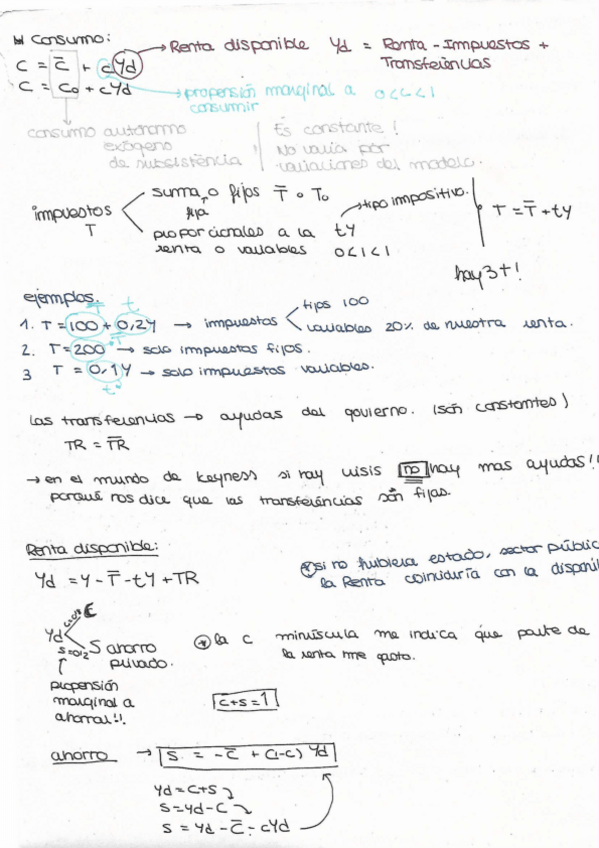 Consumo:
C = C̄ + cYd → Renta disponible Yd = Renta - Impuestos + Transferéncias
C = C₀ + cYd → propensión marginal a consumir 0<c<1
consumo autónomo
exógeno
de subsisténcia
Es constante!
No varia por
variaciones del modelo.
impuestos T
suma, o fijos T̄ o T₀
fija
proporcionales a la renta o variables tY → tipo impositivo.
0<t<1
T = T̄ + tY
hay 3 t!
ejemplos.
T̄ t
1. T = 100 + 0,2Y → impuestos
fijos 100
variables 20% de nuestra renta.
2. T = 200 T̄ → solo impuestos fijos.
3 T = 0,1Y → solo impuestos variables.
t
las transferencias → ayudas del govierno. (són constantes)
TR = T̄R̄
→ en el mundo de Keyness si hay crisis no hay mas ayudas!!
porqué nos dice que las transferéncias són fijas.
Renta disponible:
Yd = Y - T̄ - tY + TR
* si no hubiera estado, sector públic
la Renta coincidiría con la disponi
Yd
C
S=0,2 S ahorro
privado.
propensión
marginal a
ahorrar!!.
* la c minúscula me indica que parte de
la renta me gasto.
c+s=1
ahorro → S = -C̄ + (1-c) Yd
Yd = C+S
S = Yd - C
S = Yd - C̄ - cYd